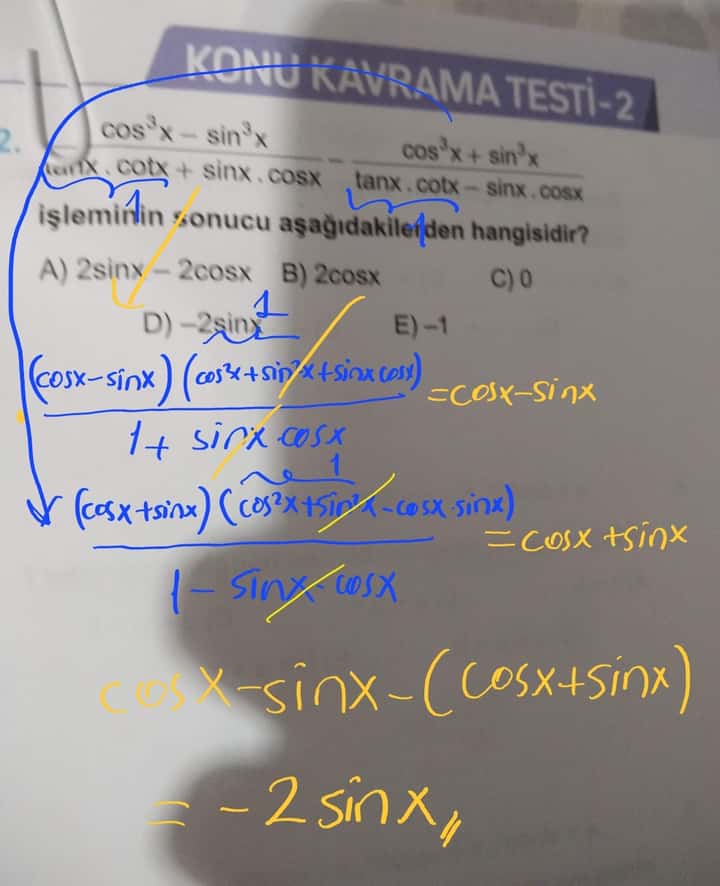 KONU KAVRAMA TESTİ-2
2.
cos³x – sin³x / tanx . cotx + sinx . cosx – cos³x + sin³x / tanx . cotx – sinx . cosx
1 1
işleminin sonucu aşağıdakilerden hangisidir?
A) 2sinx – 2cosx B) 2cosx C) 0
D) –2sinx E) –1
1
(cosx-sinx) (cos²x+sin²x+sinx cosx) / 1+ sinx cosx = cosx-sinx
1
(cosx+sinx) (cos²x+sin²x-cosx.sinx) / 1- sinx.cosx = cosx+sinx
cosx-sinx-(cosx+sinx)
= -2 sinx,,